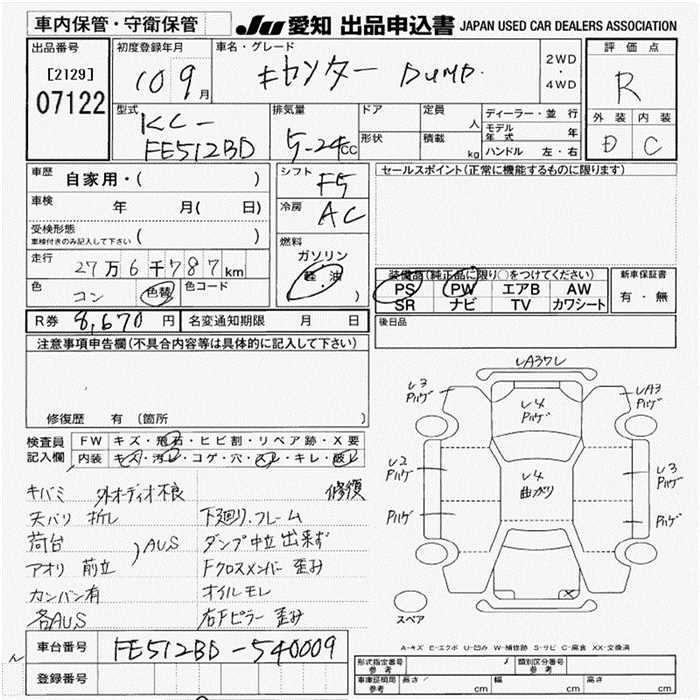 車内保管・守衛保管 JU 愛知 出品申込書 JAPAN USED CAR DEALERS ASSOCIATION
出品番号 初度登録年月 車名・グレード 2WD ・ 4WD 評価点
[2129]
07122
10 9月 キャンター DUMP. R
型式 排気量 ドア 定員 人 ディーラー・並行
KC-
FE512BD 5-24cc 形状 積載 kg モデル年式 年
ハンドル 左・右
外装 内装
D C
車歴 自家用・( ) シフト F5 セールスポイント(正常に機能するものに限ります)
車検 年 月( 日) 冷房 AC
受検形態
車検付きのみ記入して下さい ( )
燃料
ガソリン
軽・油
)
走行 27万6千787km
色 コン 色替 色コード
装備品(純正品に限り○をつけてください) 新車保証書
PS PW エアB AW 有・無
SR ナビ TV カワシート
R券 8,670円 名変通知期限 月 日 後日品
注意事項申告欄(不具合内容等は具体的に記入して下さい)
修復歴 有 〔箇所 〕
検査員 FW キズ・飛石・ヒビ割・リペア跡・X要
記入欄 内装 キズ・汚レ・コゲ・穴・スレ・キレ・破レ
キバミ 外オーディオ不良 修復
天バリ 折レ 下廻り.フレーム
荷台 )AUS ダンプ中立出来ず
アオリ 前立 Fクロスメンバー 歪み
カンバン有 オイルモレ
各AUS 右Fピラー 歪み
レA37レ
レ3 パハゲ
レ4 パハゲ
レA3 パハゲ
レ2 パハゲ
レ4 曲がり
レ3 パハゲ
パハゲ
パハゲ
X
スペア
A-キズ E-エクボ U-凹み W-補修跡 S-サビ C-腐食 XX-交換済
車台番号 FE512BD-540009
登録番号
形式指定番号 参考 類別区分番号 参考
車庫証明用 参考 長さ cm 幅 cm 高さ cm